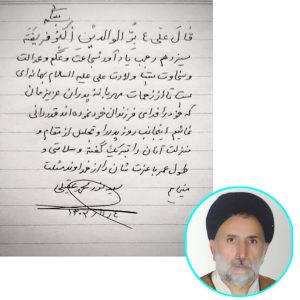 بسمه تعالی
قال علی ع بِرُّ الوالدَیْنِ اَکْبَرُ فَریضَةٍ
سیزدهم رجب یادآور شجاعت و حکم و عدالت
و سخاوت ولادت علی علیه السلام بهانه ای
ست تا از زحمات مهربانانه پدران عزیزمان
که خود را فدای فرزندان خود نموده اند قدردانی
نمائیم. اینجانب روز پدر را و تجلیل از مقام و
منزلت آنان را تبریک گفته و سلامتی و
طول عمر با عزت شان را از خداوند مسئلت
می‌نمایم